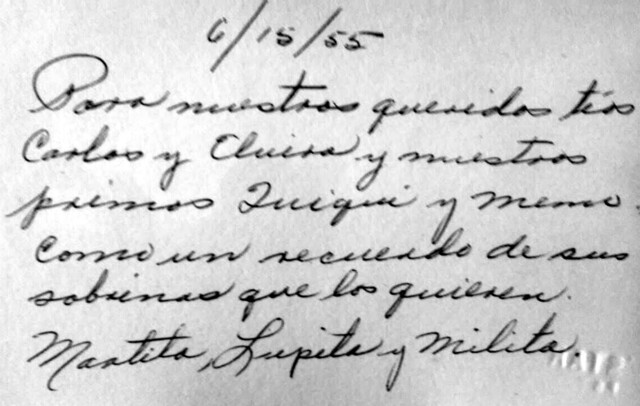 6/15/55
Para nuestros queridos tíos
Carlos y Elvira y nuestros
primos Quiqui y Memo.
Como un recuerdo de sus
sobrinas que los quieren.
Martita, Lupita y Milita.